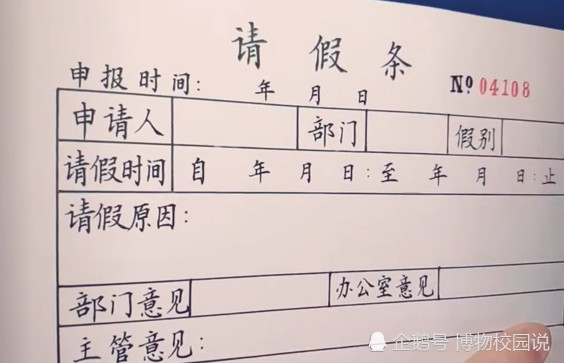 请假条
申报时间： 年 月 日 № 04108
申请人 部门 假别
请假时间 自 年 月 日：至 年 月 日：止
请假原因：
部门意见 办公室意见
主管意见：
企鹅号 博物校园说